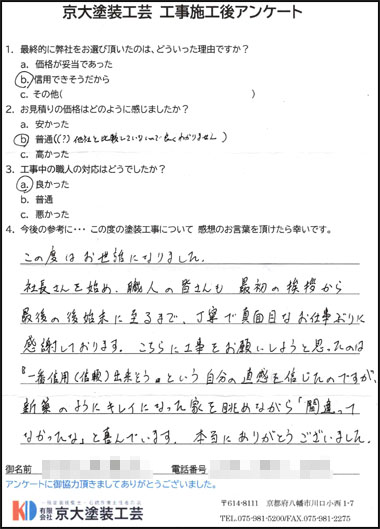 京大塗装工芸 工事施工後アンケート
1. 最終的に弊社をお選び頂いたのは、どういった理由ですか？
a. 価格が妥当であった
b. 信用できそうだから
c. その他( )
2. お見積りの価格はどのように感じましたか？
a. 安かった
b. 普通((?)他社と比較していないので良くわかりません)
c. 高かった
3. 工事中の職人の対応はどうでしたか？
a. 良かった
b. 普通
c. 悪かった
4. 今後の参考に・・・ この度の塗装工事について 感想のお言葉を頂けたら幸いです。
この度はお世話になりました。
社長さんを始め、職人の皆さんも 最初の挨拶から
最後の後始末に至るまで、丁寧で真面目なお仕事ぶりに
感謝しております。こちらに工事をお願いしようと思ったのは
『一番信用(信頼)出来そう』という自分の直感を信じたのですが、
新築のようにキレイになった家を眺めながら「間違って
なかったな」と喜んでいます。本当にありがとうございました。
御名前 電話番号
アンケートに御協力頂きましてありがとうございました。
KD 有限会社 京大塗装工芸
〒614-8111 京都府八幡市川口小西1-7
TEL.075-981-5200/FAX.075-981-2275